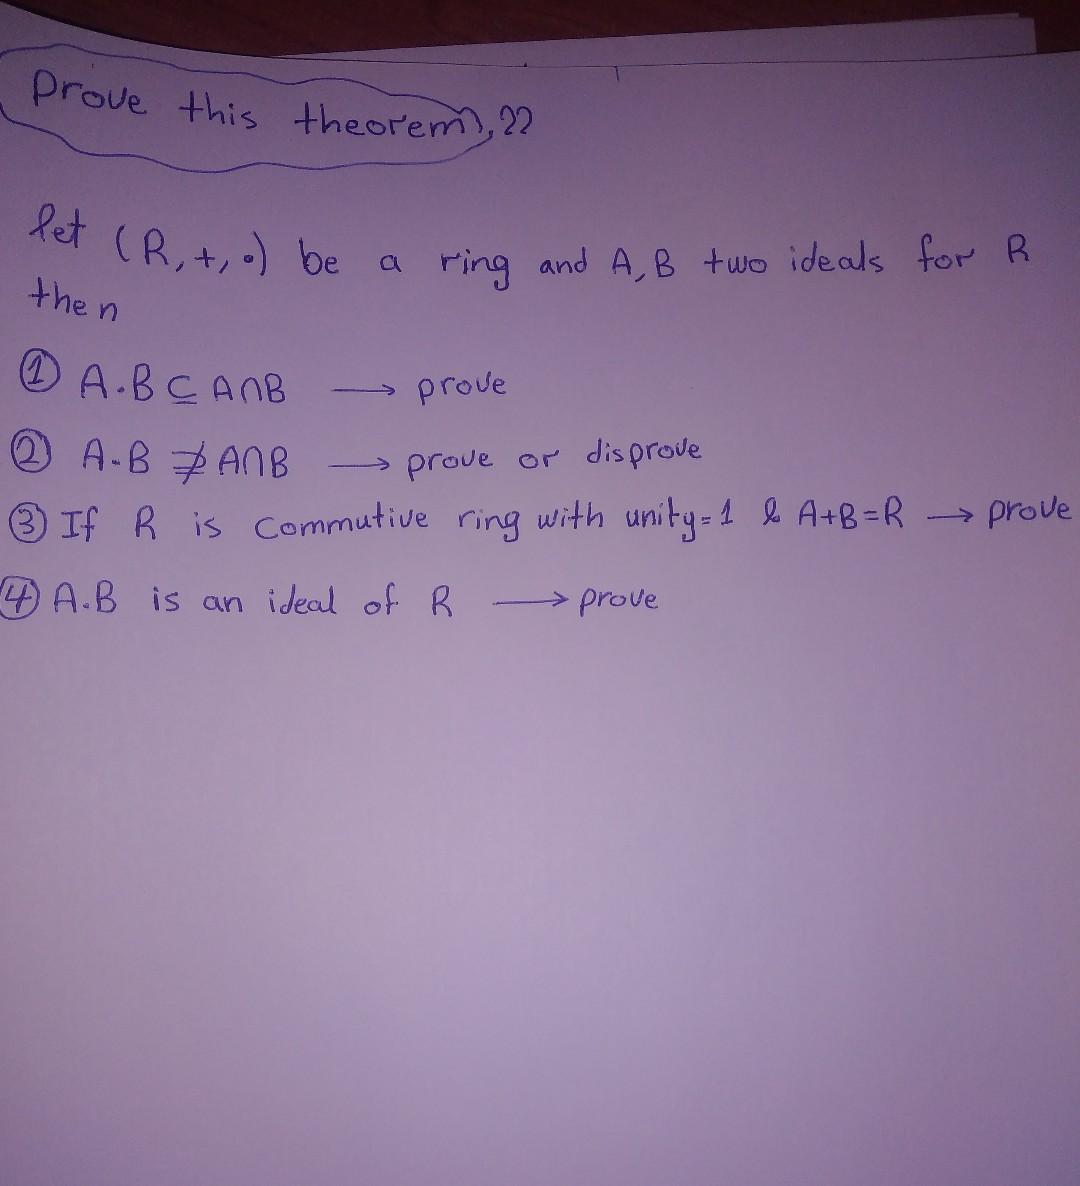 Prove this theorem, ??
let (R,+,•) be a ring and A,B two ideals for R
then
① A.B ⊆ A∩B → prove
② A.B ⊉ A∩B → prove or disprove
③ If R is commutive ring with unity=1 & A+B=R → prove
④ A.B is an ideal of R → prove